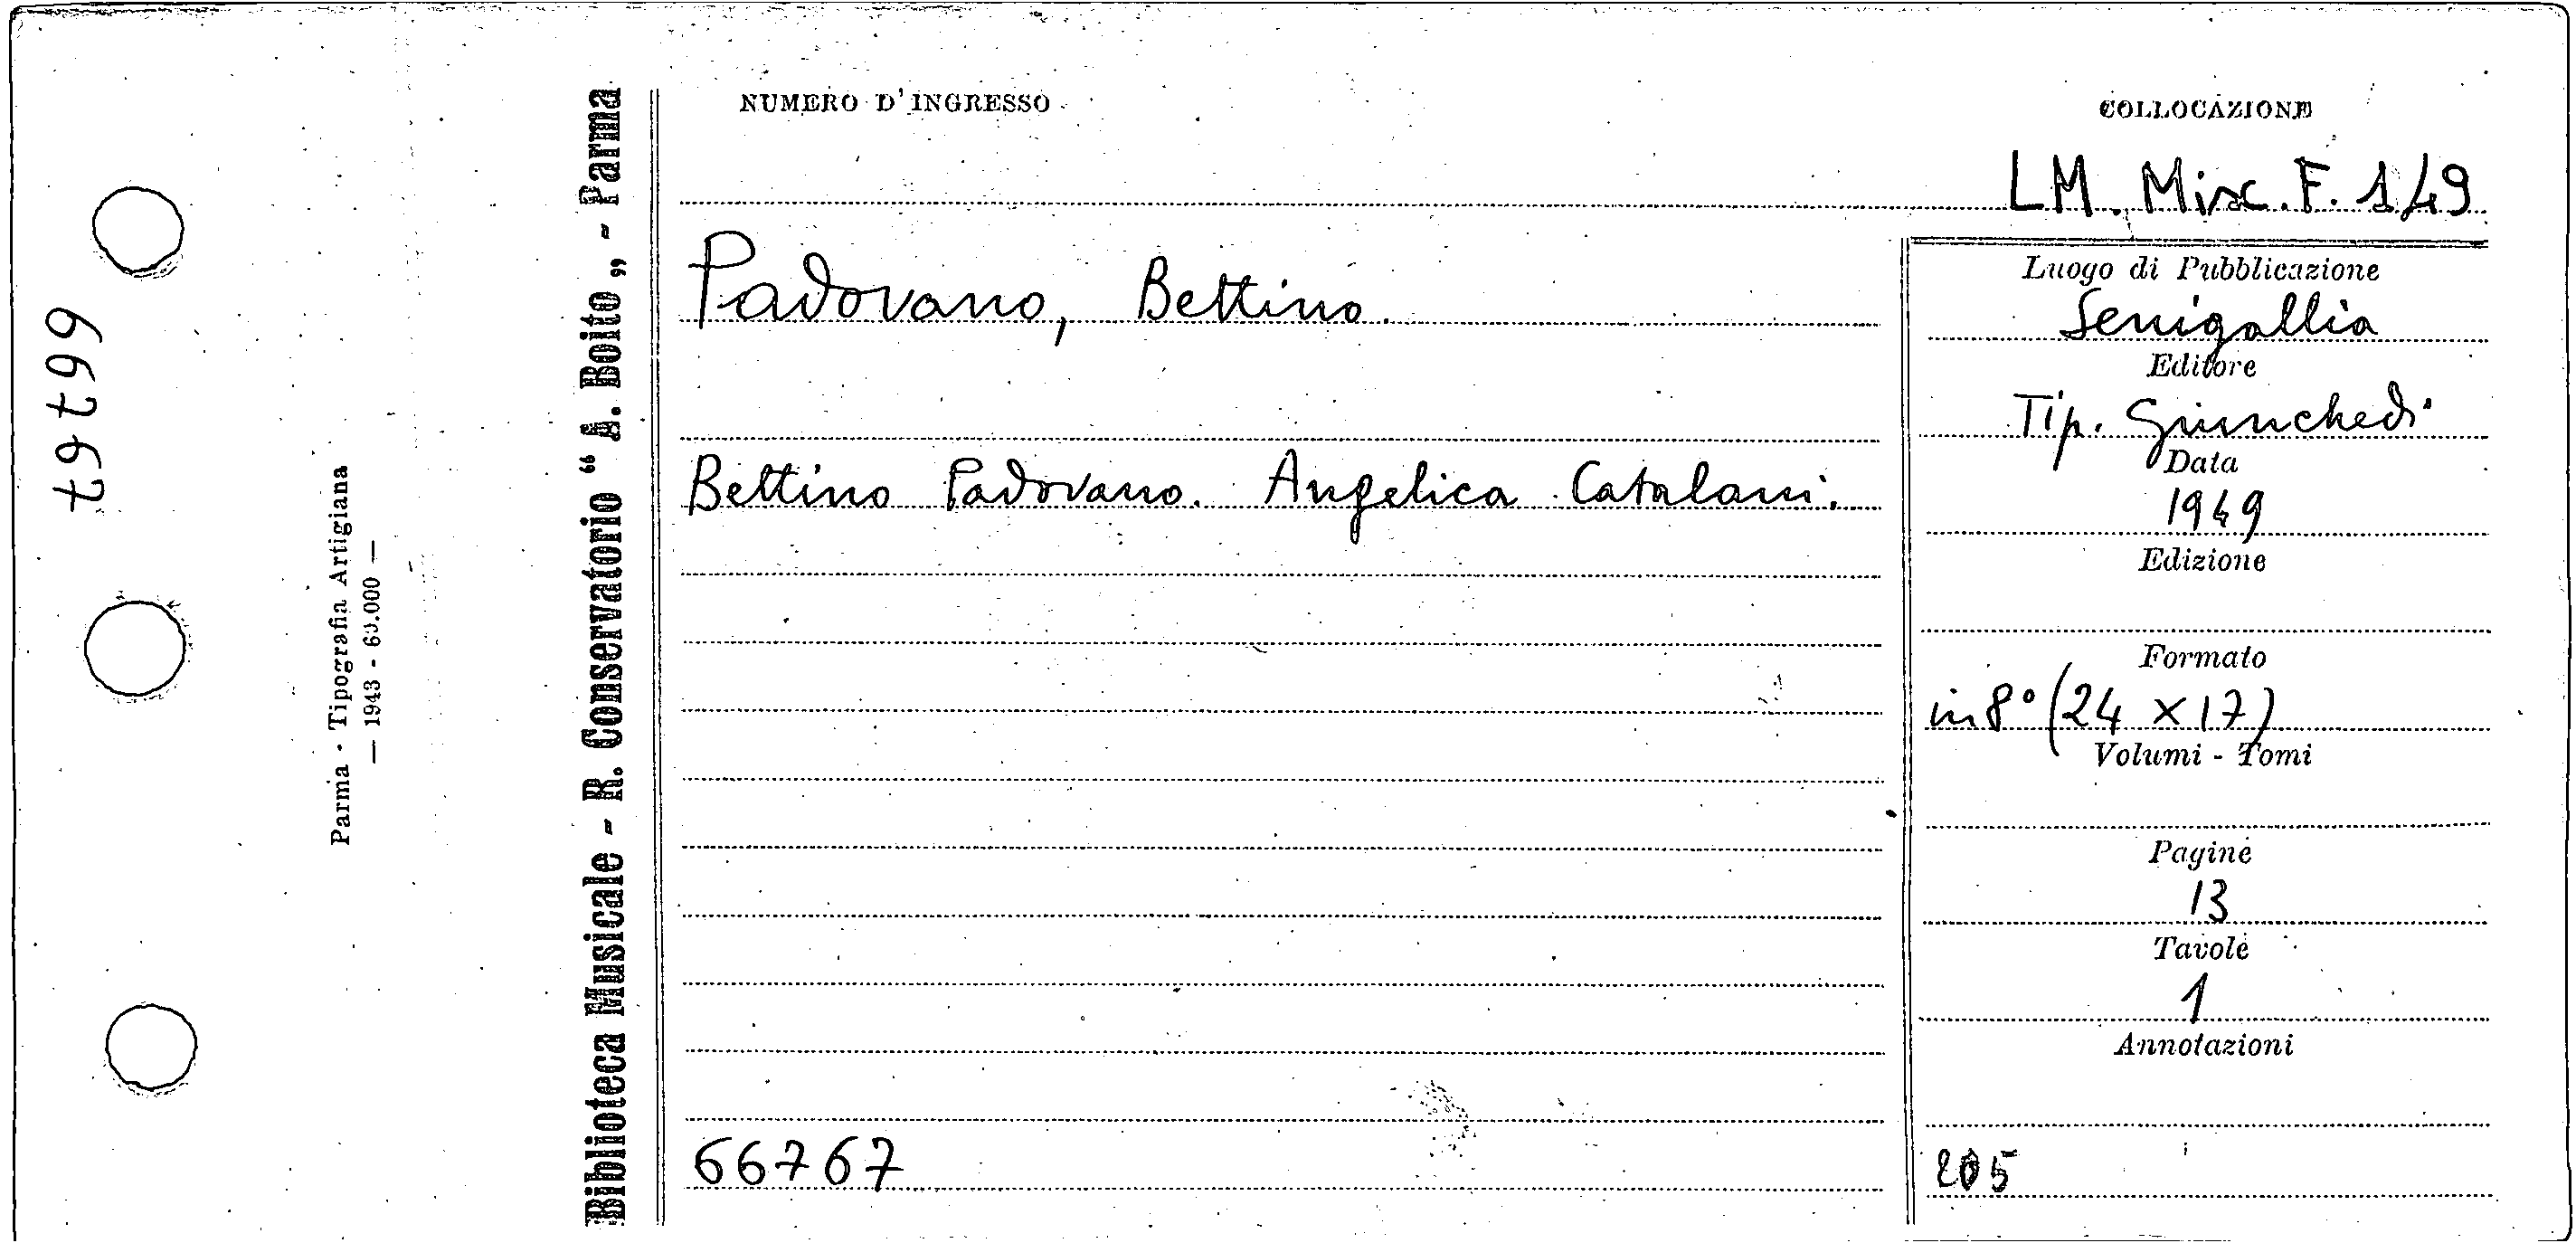 66767
Parma - Tipografia Artigiana
— 1943 - 60.000 —
Biblioteca Musicale - R. Conservatorio “A. Boito„ - Parma
NUMERO D'INGRESSO
COLLOCAZIONE
LM. Misc. F. 149
Padovano, Bettino.
Bettino Padovano. Angelica Catalani.
66767
Luogo di Pubblicazione
Senigallia
Editore
Tip. Giunchedi
Data
1949
Edizione
Formato
in 8° (24 × 17)
Volumi - Tomi
Pagine
13
Tavole
1
Annotazioni
205